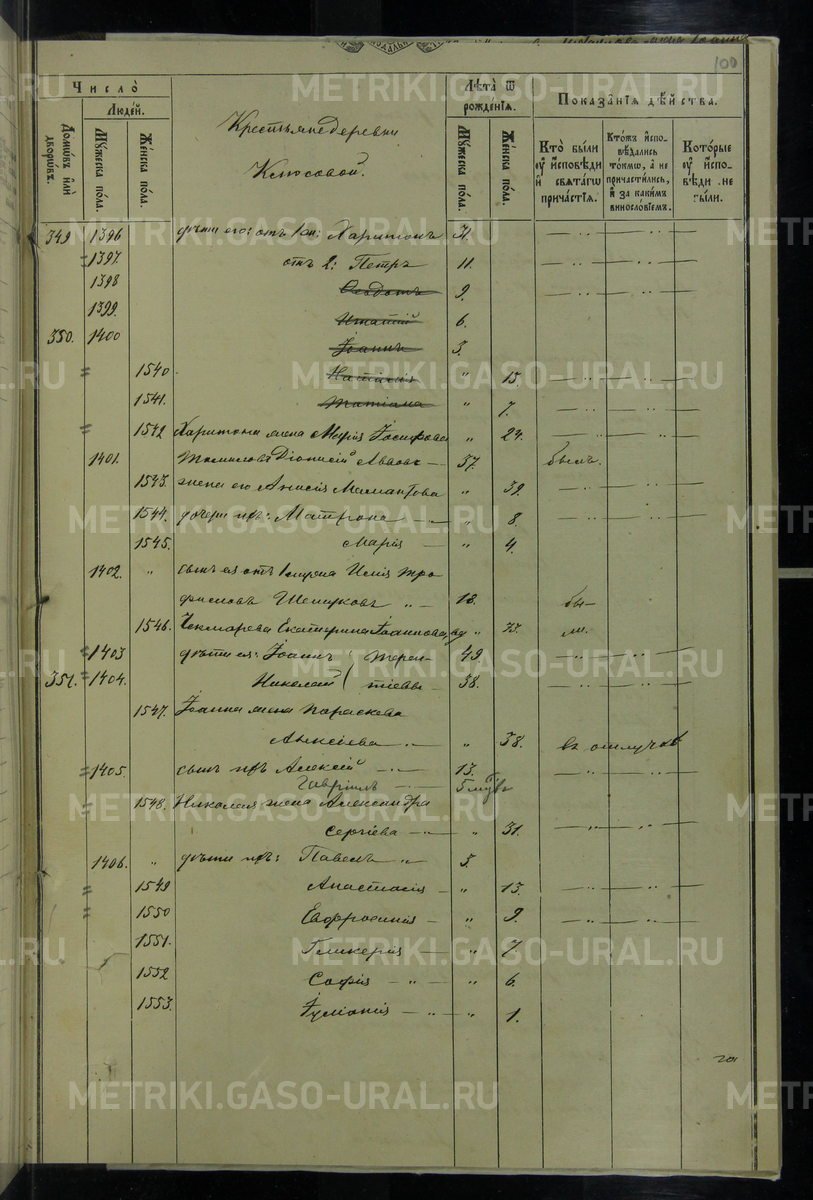 100
Число̀
Людей.
Домѡвъ или дворѡвъ.
Мꙋжеска пола.
Женска пола.
Крестьяне деревни
Клюсовой.
Лѣта ѿ рожденїя.
Мꙋжеска пола.
Женска пола.
Показанїя дѣйства.
Кто были ᲂу исповѣди и свѧтагѡ причастїя.
Ктожъ исповѣдались токмѡ, а не причастились, и за какимъ винословїемъ.
Которые ᲂу исповѣди не были.
349 1396 дѣти его: отъ 1 ж: Харитонъ 31.
1397 отъ 2: Петръ 11.
1398 Ѳеодотъ 9.
1399. Игнатій 6.
350. 1400 Іоаннъ 3.
1540 Наталія " 15.
1541. Татіана " 7.
1542 Харитона жена Марія Іосифова " 24.
1401. Діонисій 37. былъ.
1543. жена его Анисія Мамантова " 39.
1544. дочери ихъ: Матрона " 8.
1545. Марія " 4.
1402. " сынъ ея отъ 1 мужа Илія Тро
фимовъ 18. бы-
1546. Чекмарева Екатерина Іоаннова, вд " 73. ли.
1403 дѣти ея: Іоаннъ Терен- 49
351. 1404. Николай тіевы 38.
1547. Іоанна жена Параскева
Алексіева " 38. въ отлучкѣ
1405. сынъ ихъ Алексій 13.
Гавріилъ 5 мѣс
1548. Николая жена Александра
Сергіева " 31.
1406. " дѣти ихъ: Павелъ 3.
1549 Анастасія " 13.
1550 Евфросинія " 9.
1551. Гликерія " 7.
1552 Софія " 6.
1553. Іуліанія " 1.
201
METRIKI.GASO-URAL.RU